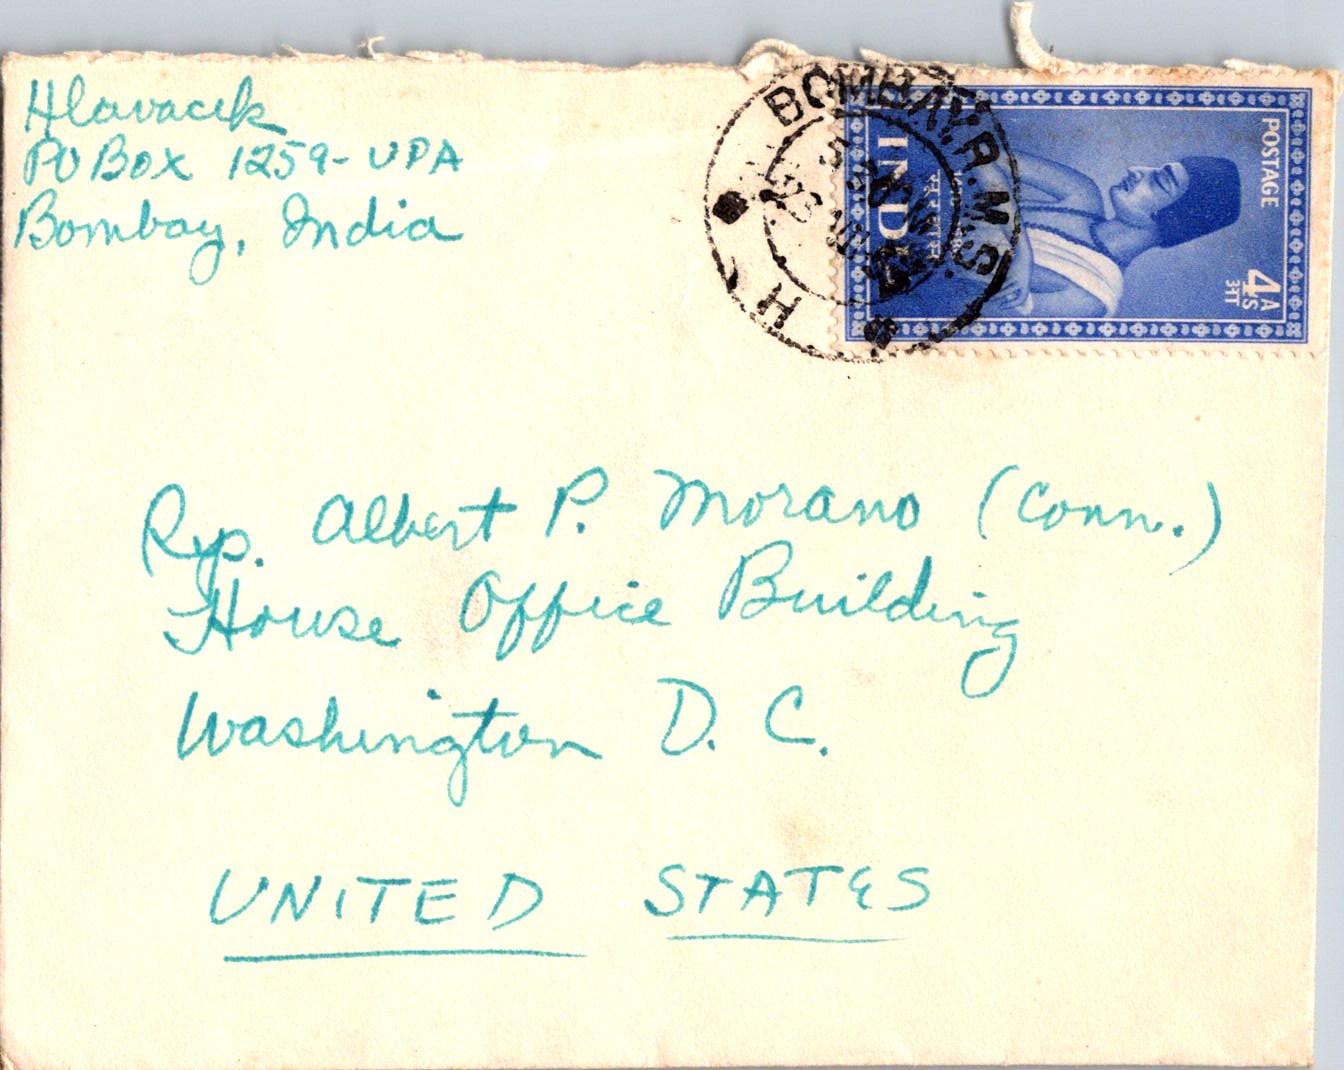 Hlavacek
PO Box 1259-UPA
Bombay, India
BOMBAY.R.M.S.
H
INDIA
POSTAGE
4 AS
Rep. Albert P. Morano (Conn.)
House Office Building
Washington D.C.
UNITED STATES